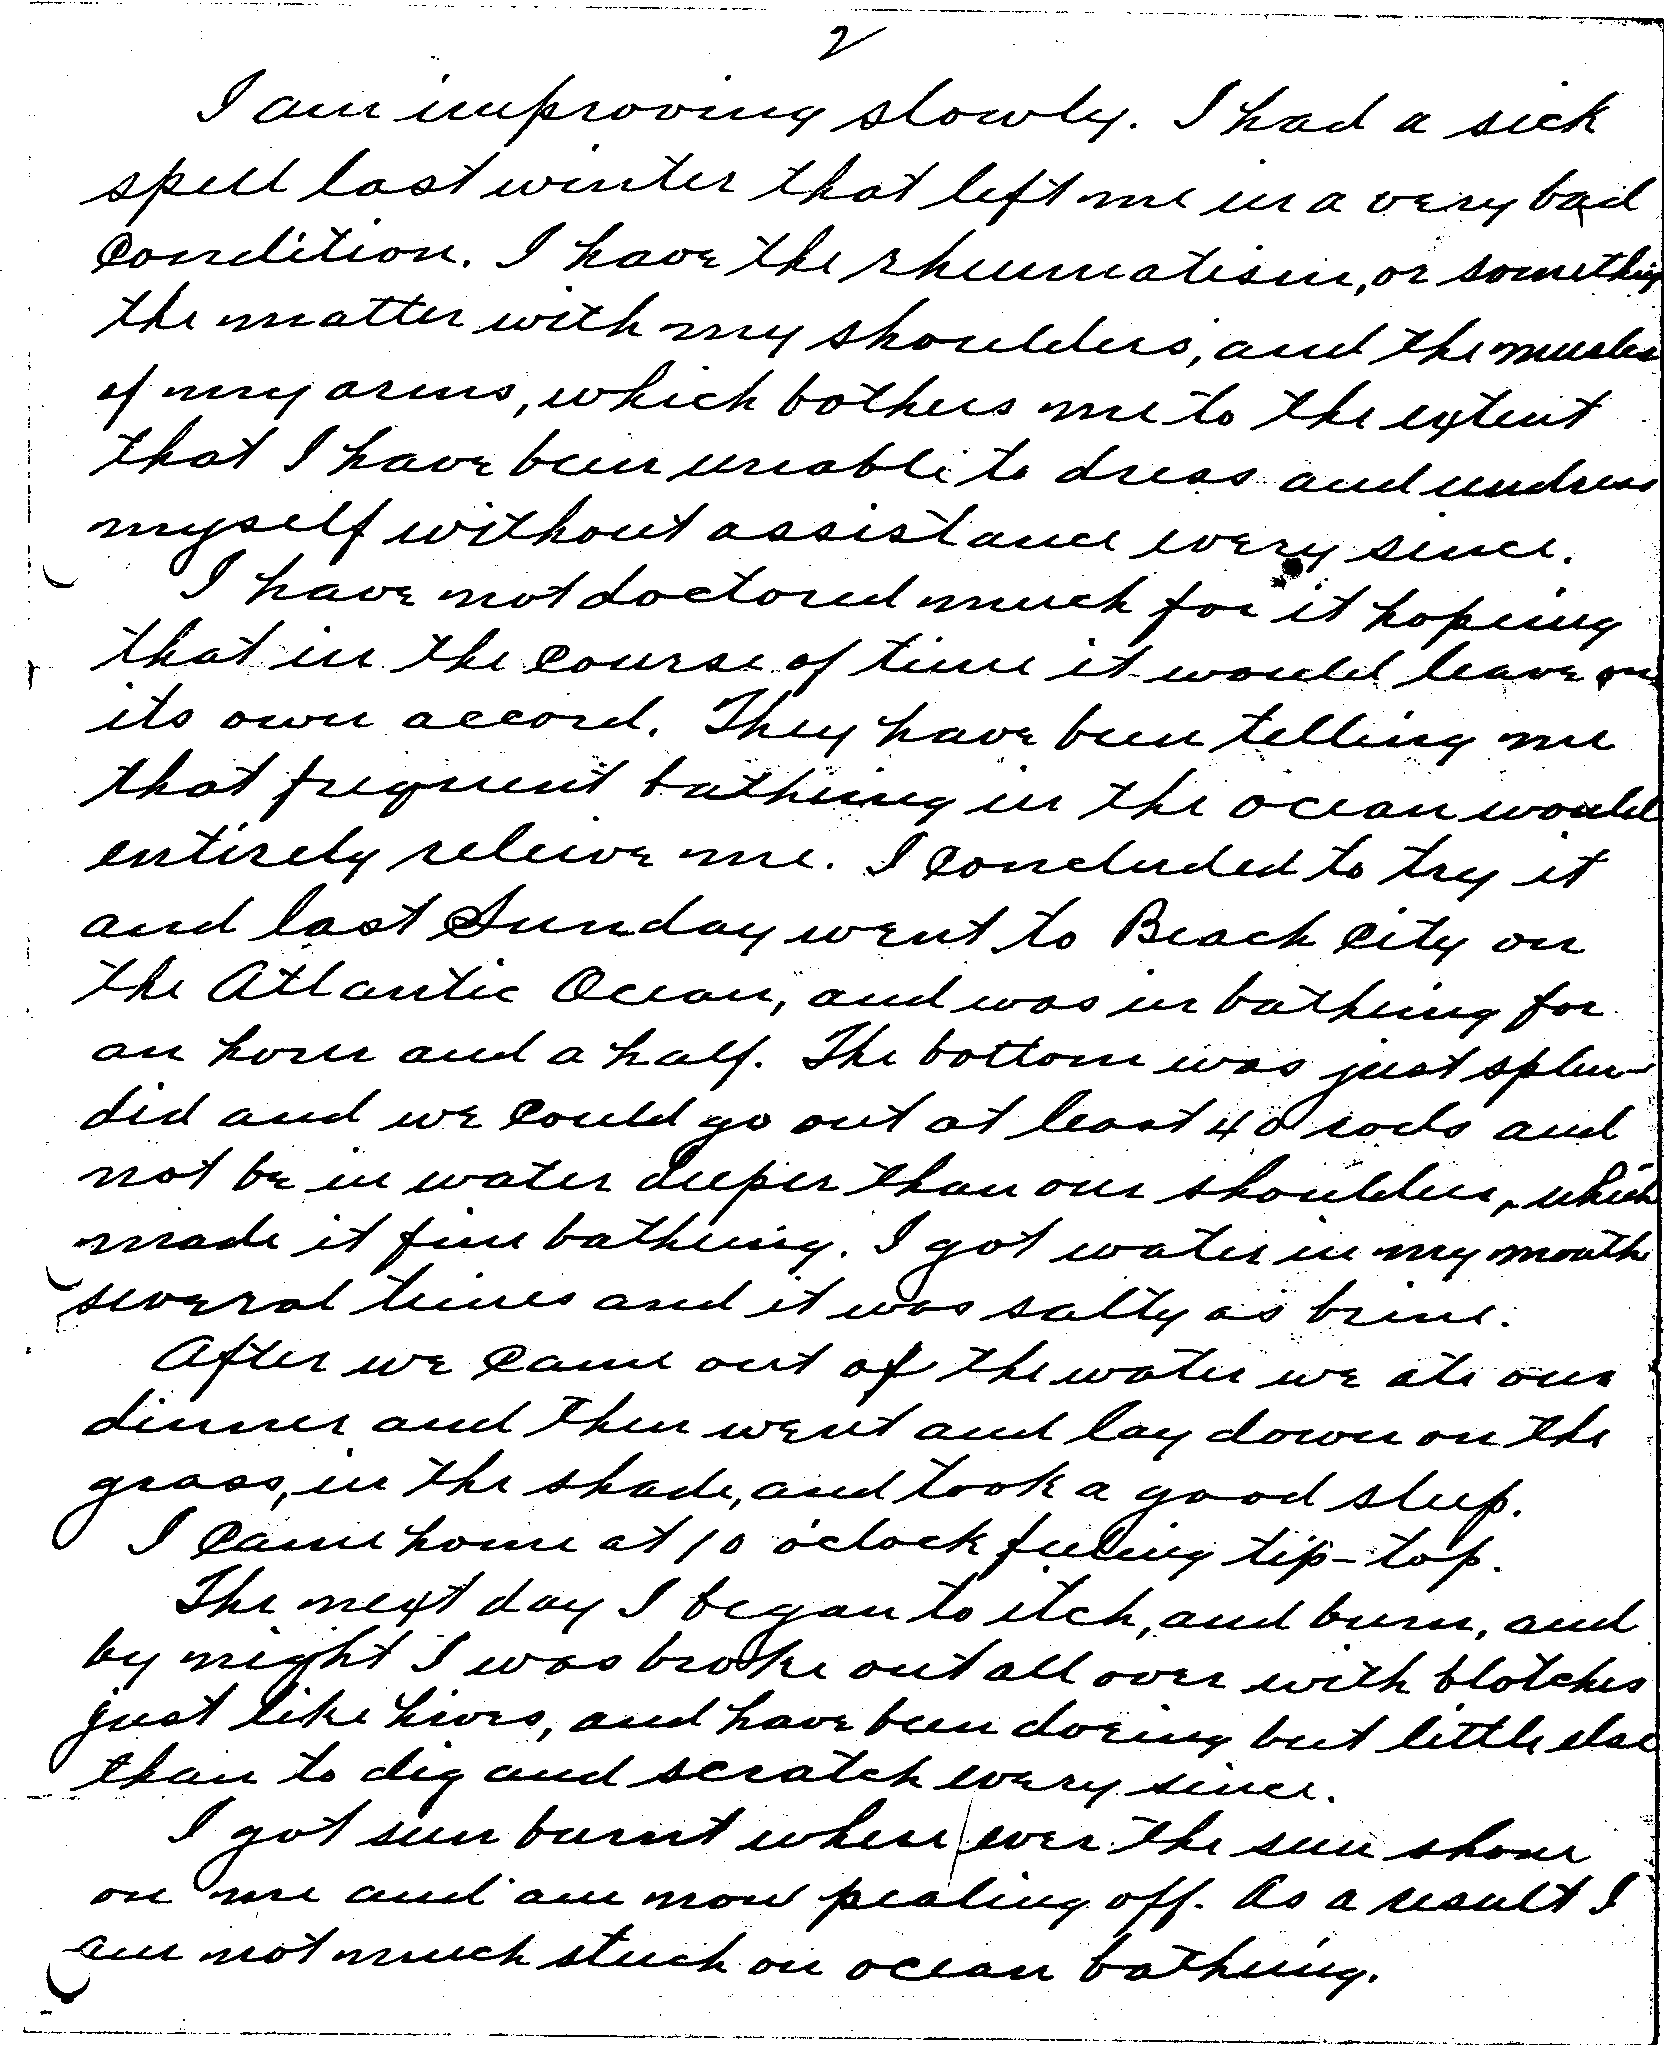 2
I am improving slowly. I had a sick
spell last winter that left me in a very bad
condition. I have the rheumatism, or something
the matter with my shoulders, and the muscles
of my arms, which bothers me to the extent
that I have been unable to dress and undress
myself without assistance every since.
I have not doctored much for it hoping
that in the course of time it would leave on
its own accord. They have been telling me
that frequent bathing in the ocean would
entirely releive me. I concluded to try it
and last Sunday went to Beach City on
the Atlantic Ocean, and was in bathing for
an hour and a half. The bottom was just splen-
did and we could go out at least 40 rods and
not be in water deeper than our shoulders, which
made it fine bathing. I got water in my mouth
several times and it was salty as brine.
After we came out of the water we ate our
dinner and then went and lay down on the
grass, in the shade, and took a good sleep.
I came home at 10 o'clock feeling tip-top.
The next day I began to itch, and burn, and
by night I was broke out all over with blotches
just like hives, and have been doeing but little else
than to dig and scratch every since.
I got sun burnt where ever the sun shone
on me and am now pealing off. As a result I
am not much stuck on ocean bathing.